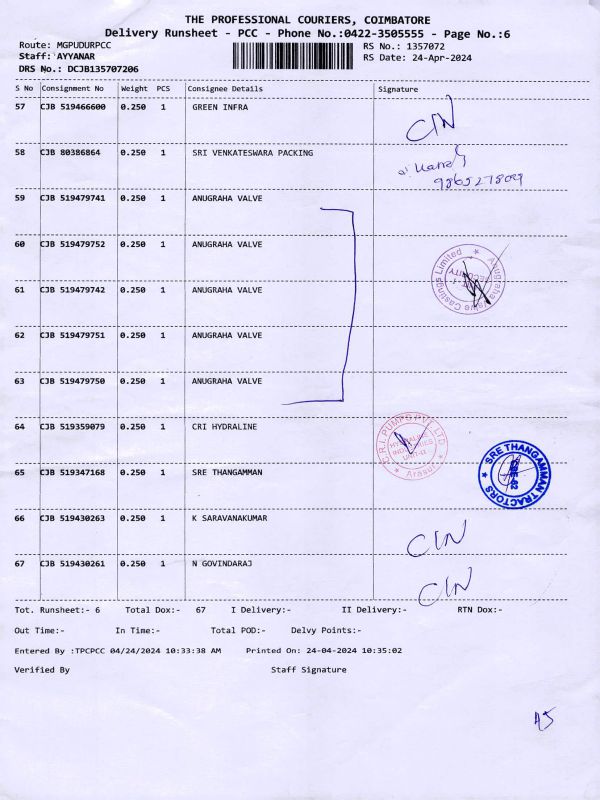 THE PROFESSIONAL COURIERS, COIMBATORE
Delivery Runsheet - PCC - Phone No.:0422-3505555 - Page No.:6
Route: MGPUDURPCC RS No.: 1357072
Staff: AYYANAR RS Date: 24-Apr-2024
DRS No.: DCJB135707206
S No Consignment No Weight PCS Consignee Details Signature
57 CJB 519466600 0.250 1 GREEN INFRA CIN
58 CJB 80386864 0.250 1 SRI VENKATESWARA PACKING
9865278099
59 CJB 519479741 0.250 1 ANUGRAHA VALVE
60 CJB 519479752 0.250 1 ANUGRAHA VALVE
Anugraha Valve Castings Limited
SECURITY
61 CJB 519479742 0.250 1 ANUGRAHA VALVE
62 CJB 519479751 0.250 1 ANUGRAHA VALVE
63 CJB 519479750 0.250 1 ANUGRAHA VALVE
64 CJB 519359079 0.250 1 CRI HYDRALINE
C.R.I. PUMPS PVT LTD
HYDRALINE
INDUSTRIES
UNIT-II
Arasur
65 CJB 519347168 0.250 1 SRE THANGAMMAN
SRE THANGAMMAN TRACTORS
66 CJB 519430263 0.250 1 K SARAVANAKUMAR CIN
67 CJB 519430261 0.250 1 N GOVINDARAJ CIN
Tot. Runsheet:- 6 Total Dox:- 67 I Delivery:- II Delivery:- RTN Dox:-
Out Time:- In Time:- Total POD:- Delvy Points:-
Entered By :TPCPCC 04/24/2024 10:33:38 AM Printed On: 24-04-2024 10:35:02
Verified By Staff Signature